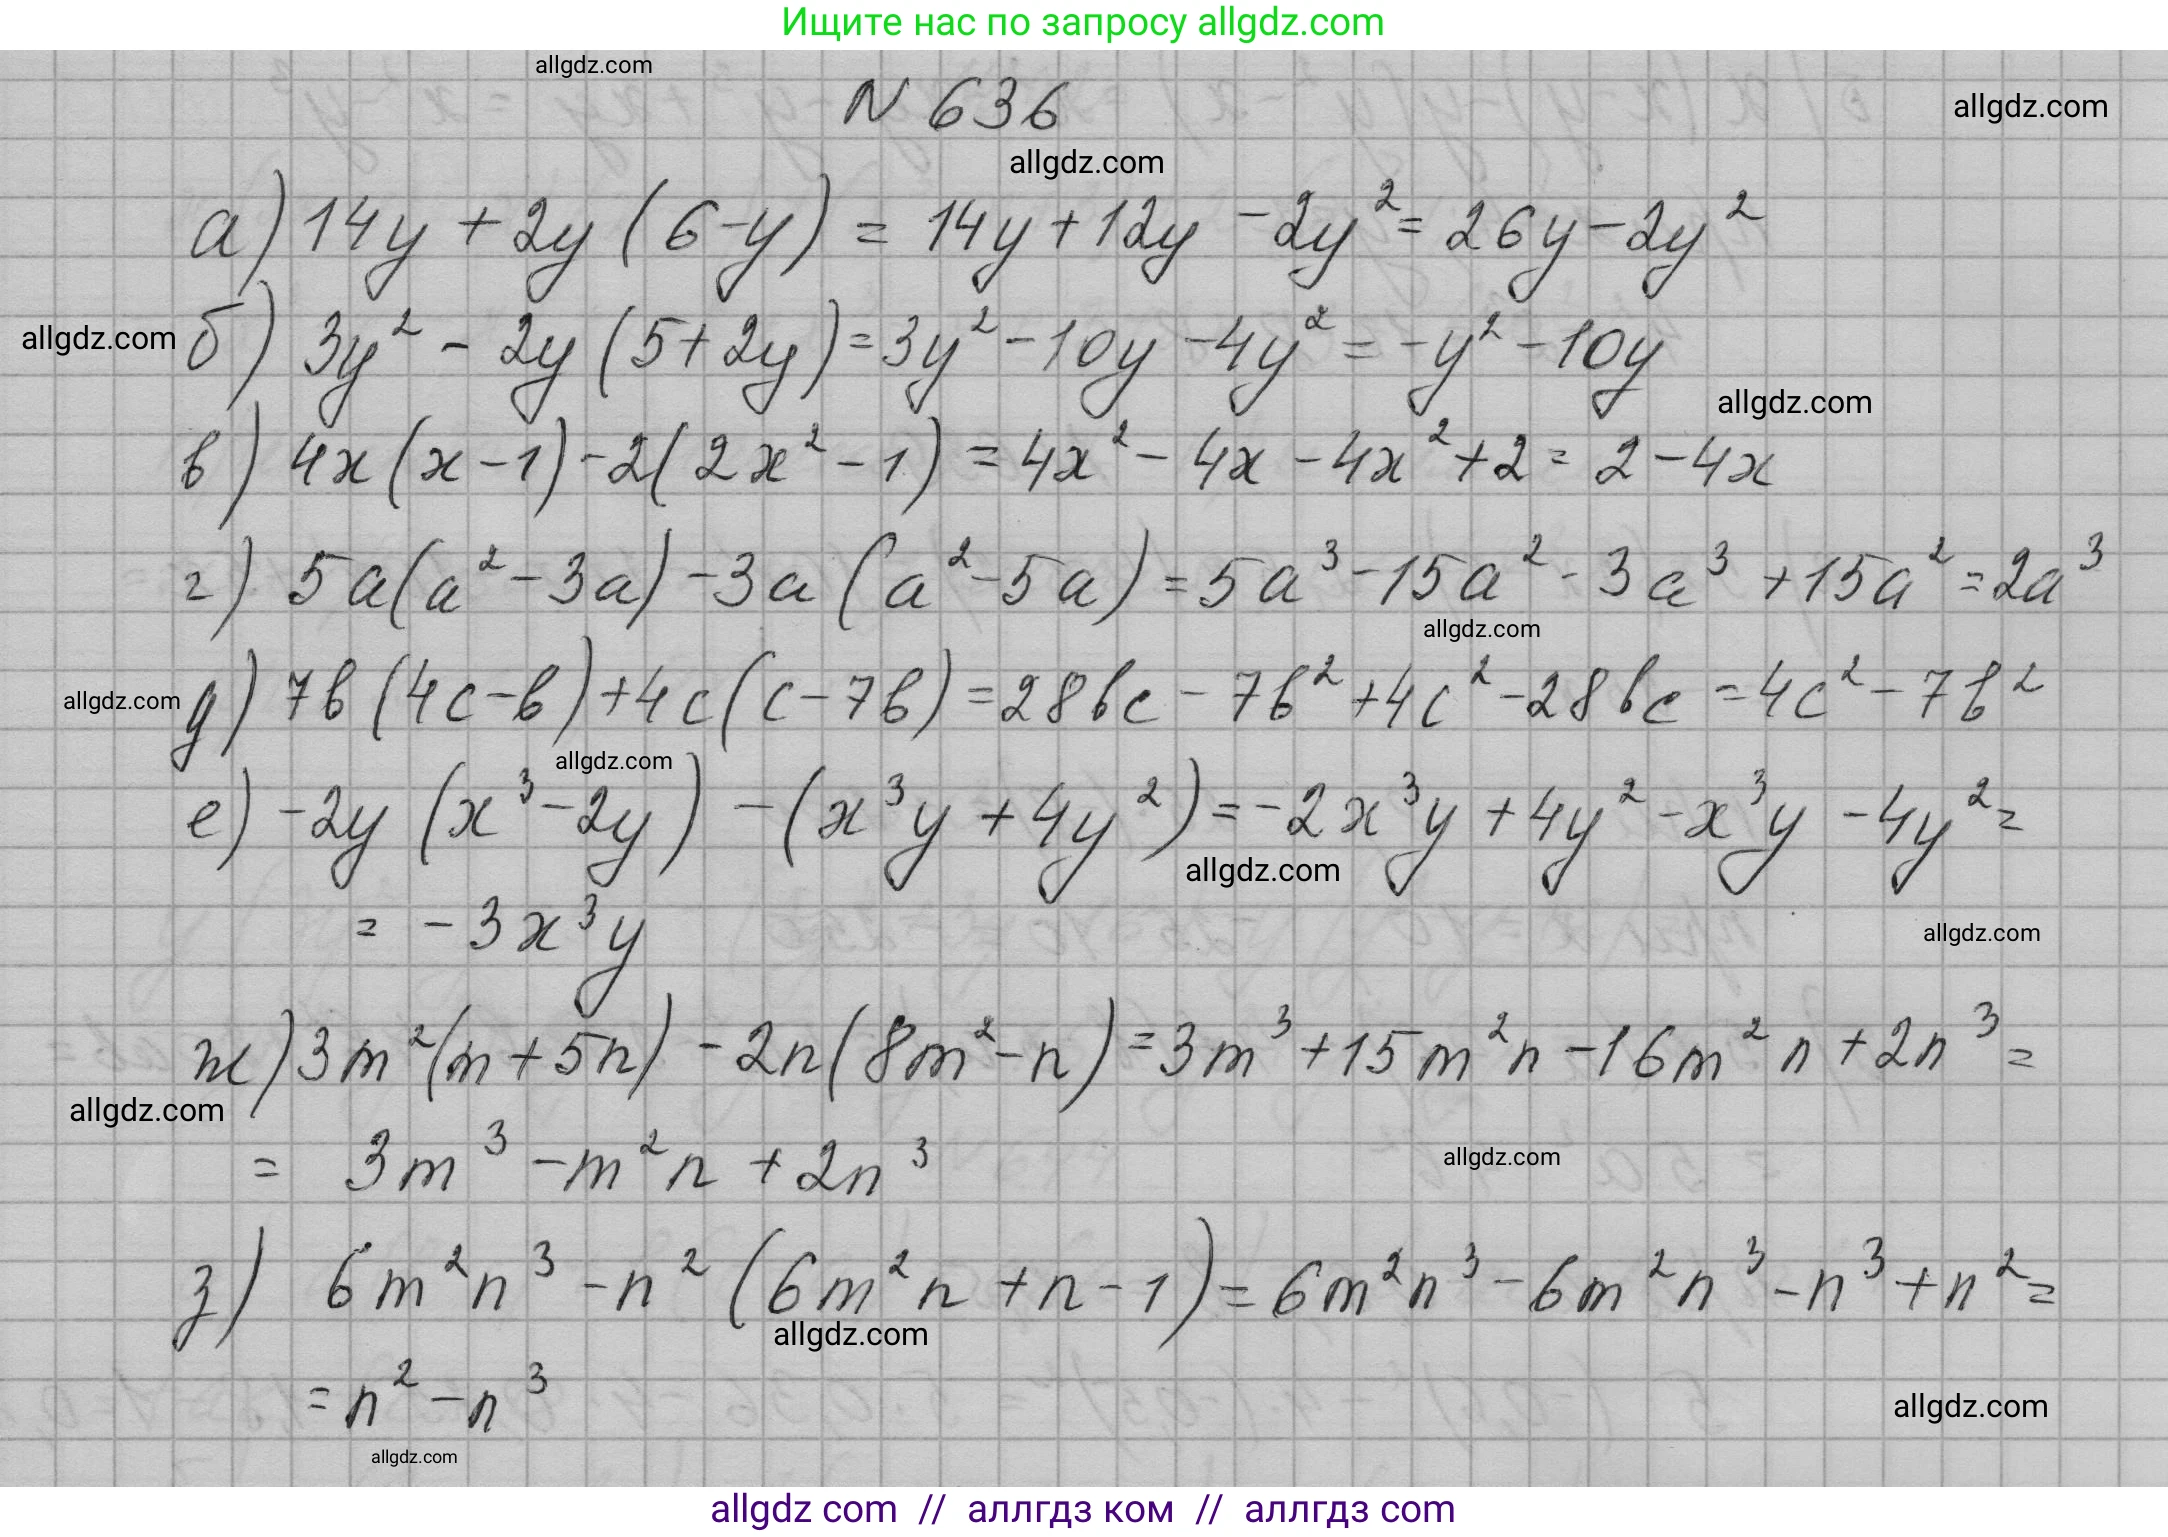 Ищите нас по запросу allgdz.com
allgdz.com
N 636
allgdz.com
allgdz.com
а) 14y + 2y (6-y) = 14y + 12y - 2y² = 26y - 2y²
allgdz.com
б) 3y² - 2y (5 + 2y) = 3y² - 10y - 4y² = -y² - 10y
allgdz.com
в) 4x (x - 1) - 2(2x² - 1) = 4x² - 4x - 4x² + 2 = 2 - 4x
г) 5a(a² - 3a) - 3a (a² - 5a) = 5a³ - 15a² - 3a³ + 15a² = 2a³
allgdz.com
allgdz.com
д) 7b (4c - b) + 4c (c - 7b) = 28bc - 7b² + 4c² - 28bc = 4c² - 7b²
allgdz.com
е) -2y (x³ - 2y) - (x³y + 4y²) = -2x³y + 4y² - x³y - 4y² =
allgdz.com
= -3x³y
allgdz.com
ж) 3m²(m + 5n) - 2n(8m² - n) = 3m³ + 15m²n - 16m²n + 2n³ =
allgdz.com
= 3m³ - m²n + 2n³
allgdz.com
з) 6m²n³ - n² (6m²n + n - 1) = 6m²n³ - 6m²n³ - n³ + n² =
allgdz.com
= n² - n³
allgdz.com
allgdz.com
allgdz com // аллгдз ком // аллгдз com